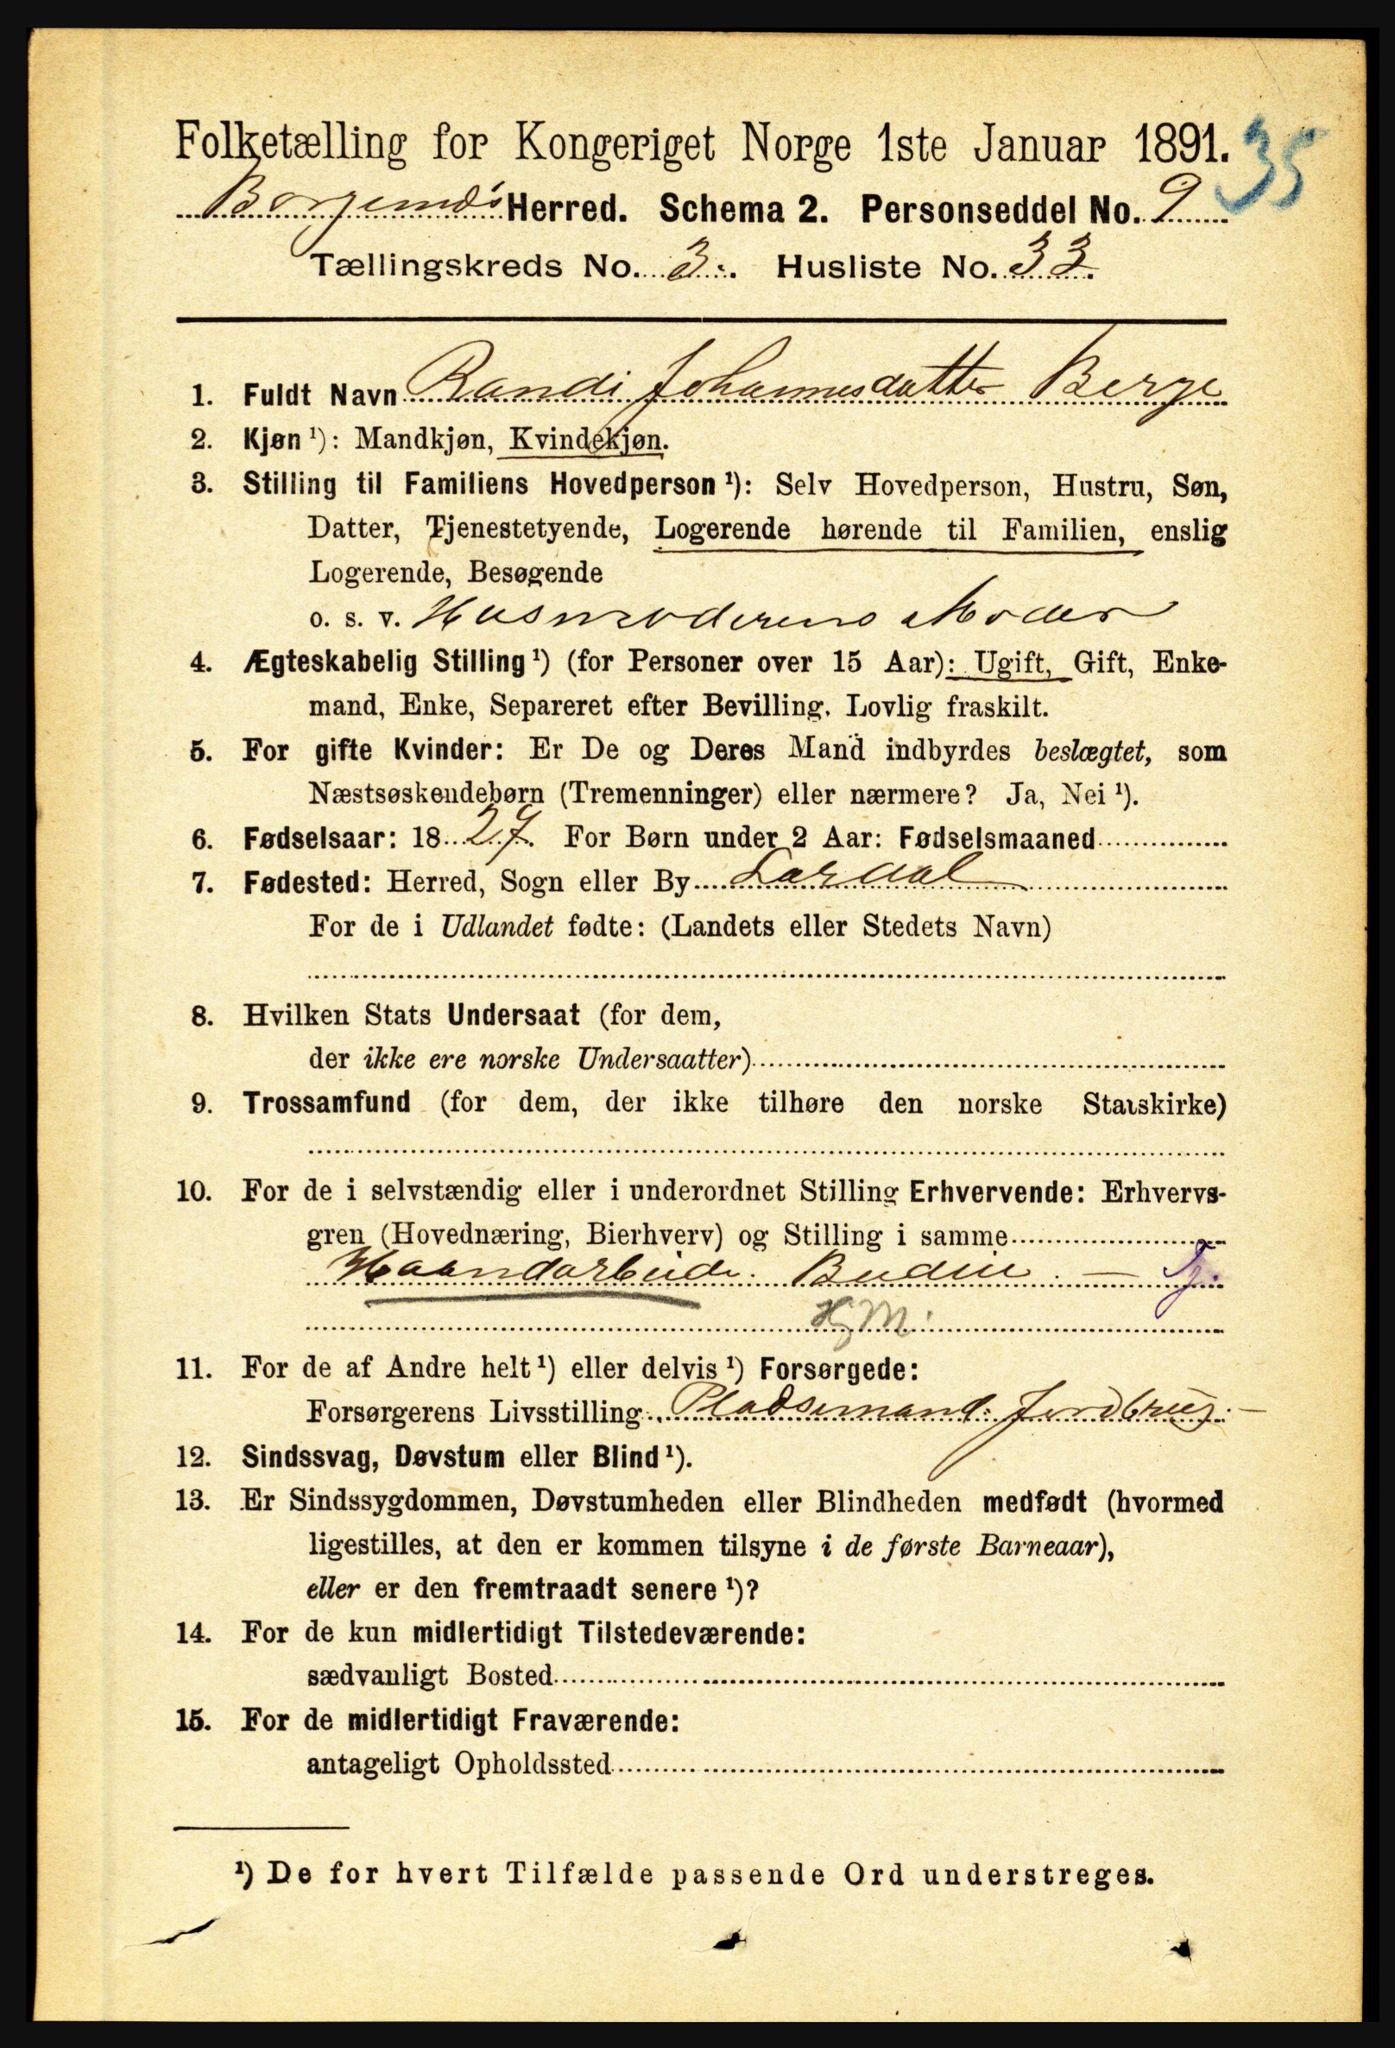 Folketælling for Kongeriget Norge 1ste Januar 1891. 35
Borgunds Herred. Schema 2. Personseddel No. 9
Tællingskreds No. 3. Husliste No. 33.
1. Fuldt Navn Randi Johannesdatter Berge
2. Kjøn ¹): Mandkjøn, Kvindekjøn.
3. Stilling til Familiens Hovedperson ¹): Selv Hovedperson, Hustru, Søn,
Datter, Tjenestetyende, Logerende hørende til Familien, enslig
Logerende, Besøgende
o. s. v. Husmoderens Moder
4. Ægteskabelig Stilling ¹) (for Personer over 15 Aar): Ugift, Gift, Enke-
mand, Enke, Separeret efter Bevilling. Lovlig fraskilt.
5. For gifte Kvinder: Er De og Deres Mand indbyrdes beslægtet, som
Næstsøskendebørn (Tremenninger) eller nærmere? Ja, Nei ¹).
6. Fødselsaar: 18 27. For Børn under 2 Aar: Fødselsmaaned
7. Fødested: Herred, Sogn eller By Lærdal
For de i Udlandet fødte: (Landets eller Stedets Navn)
8. Hvilken Stats Undersaat (for dem,
der ikke ere norske Undersaatter)
9. Trossamfund (for dem, der ikke tilhøre den norske Statskirke)
10. For de i selvstændig eller i underordnet Stilling Erhvervende: Erhvervs-
gren (Hovednæring, Bierhverv) og Stilling i samme
Haandarbeide. Budeie. — Tj.
HgM.
11. For de af Andre helt ¹) eller delvis ¹) Forsørgede:
Forsørgerens Livsstilling Pladsemand. Jordbrug. —
12. Sindssvag, Døvstum eller Blind ¹).
13. Er Sindssygdommen, Døvstumheden eller Blindheden medfødt (hvormed
ligestilles, at den er kommen tilsyne i de første Barneaar),
eller er den fremtraadt senere ¹)?
14. For de kun midlertidigt Tilstedeværende:
sædvanligt Bosted
15. For de midlertidigt Fraværende:
antageligt Opholdssted
¹) De for hvert Tilfælde passende Ord understreges.